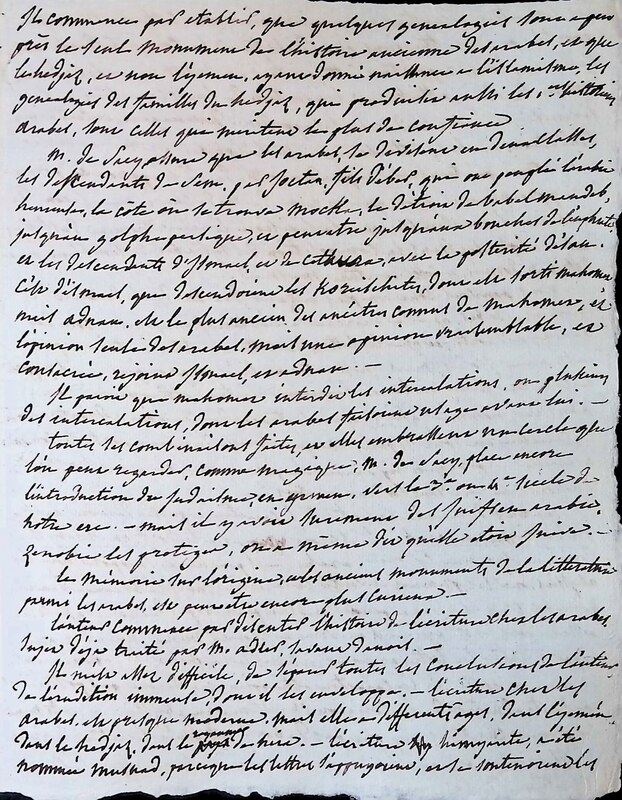 Il commence par etablir, que quelques genealogies sont a peu
près le seul monument de l'histoire ancienne des arabes, et que
le hedjaz, et non l'yemen, ayant donné naissance a l'islamisme, les
genealogies des familles du hedjaz, que produisit aussi les 1ers historiens
arabes, sont celles que méritent le plus de confiance
M. de Sacy assure que les arabes, se divisent en deux classes,
les descendants de Sem, par Joctan, fils d'héber, qui ont peuplé l'arabie
heureuse, la côte où se trouve Mocka, le détroit de babel mandeb,
jusqu'au golphe persique, et peut être jusqu'aux bouches de l'euphrate
et les descendants d'Ismael, et de Cethura, avec la postérité d'Esau.
C'est d'ismael, que descendoient les Koreischites, dont est sorti mahomet
mais adnan, est le plus ancien des ancêtres connus de mahomet, et
l'opinion seule des arabes, mais une opinion vraisemblable, et
consacrée, rejoint Ismael, et adnan. —
Il paroit que mahomet interdit les intercalations, ou plusieurs
des intercalations, dont les arabes faisoient usage avant lui. —
toutes ses combinaisons faites, et elles embrassent un cercle que
l'on peut regarder, comme magique, M. de Sacy, place encore
l'introduction du judaisme, en yemen, vers le 3e ou 4e siècle de
notre ere. — mais il y avoit surement des juifs en arabie,
Zenobie les protégea, on a même dit qu'elle etoit juive. —
Le mémoire sur l'origine, et les anciens monuments de la litterature
parmi les arabes, est peut être encore plus curieux. —
L'auteur commence par discuter l'histoire de l'écriture chez les arabes
sujet déja traité par M. adler, savant danois. —
Il m'est assez difficile, de séparer toutes les conclusions de l'auteur
de l'erudition immense, dont il les enveloppe. — l'ecriture chez les
arabes, est presque moderne, mais elle a differents ages, dans l'yémen,
dans le hedjaz, dans le royaume de hira. — l'écriture himyarite, a été
nommée musnad, parce que les lettres s'appuyoient, et se soutenoient les